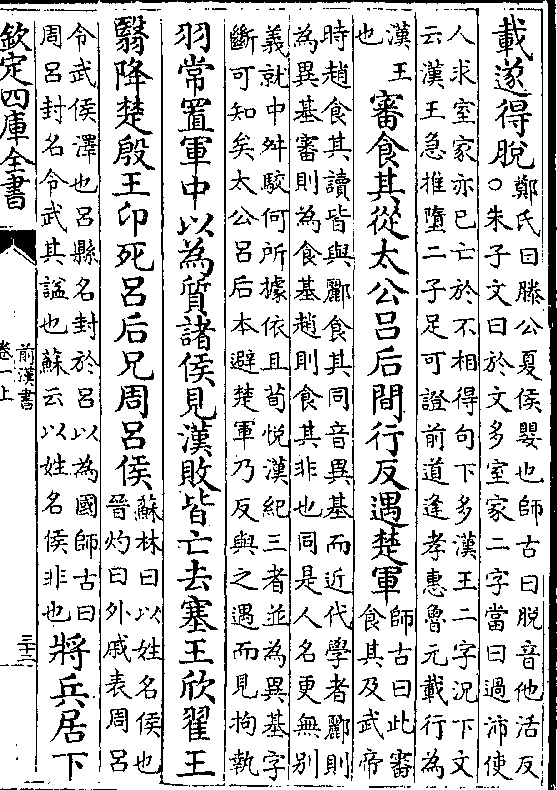 載遂得脫
鄭氏曰滕公夏侯嬰也師古曰脫音他活反
○朱子文曰於文多室家二字當曰過沛使
人求室家亦已亡於不相得句下多漢王二字況下文
云漢王急推墮二子足可證前道逢孝惠魯元載行為
漢王
也
審食其從太公呂后間行反遇楚軍
師古曰此審
食其及武帝
時趙食其讀皆與酈食其同音異基而近代學者酈則
為異基審則為食基趙則食其非也同是人名更無別
義就中舛駮何所據依且荀悅漢紀三者並為異基字
斷可知矣太公呂后本避楚軍乃反與之遇而見拘執
羽常置軍中以為質諸侯見漢敗皆亡去塞王欣翟王
翳降楚殷王卬死呂后兄周呂侯
蘇林曰以姓名侯也
晉灼曰外戚表周呂
令武侯澤也呂縣名封於呂以為國師古曰
周呂封名令武其諡也蘇云以姓名侯非也
將兵居下
欽定四庫全書
前漢書
卷一上
三十二